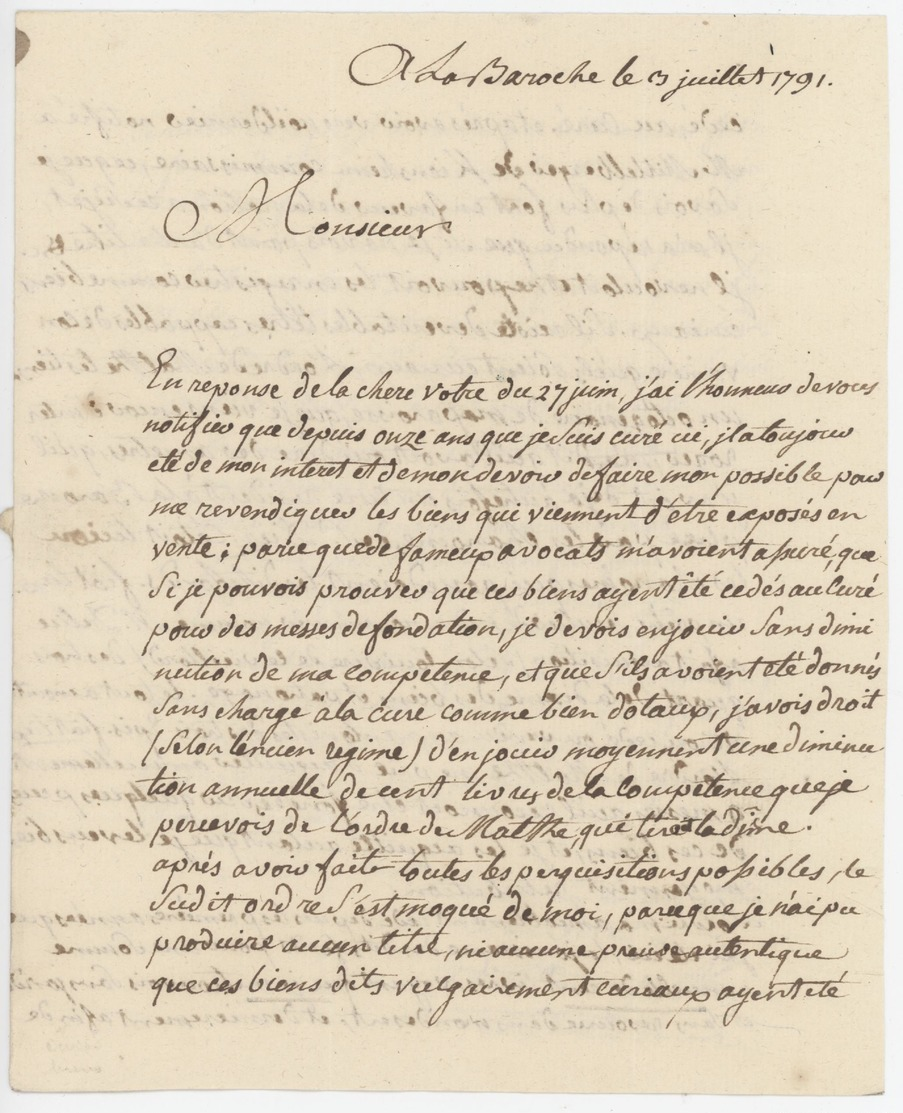 A La Baroche le 3 juillet 1791.
Monsieur
En reponse de la chere votre du 27 juin, j'ai l'honneur de vous
notifier que depuis onze ans que je suis curé ici, il a toujour
eté de mon interet et de mon devoir de faire mon possible pour
me revendiquer les biens qui viennent d'être exposés en
vente; parceque de fameux avocats m'avoient assuré, que
si je pouvois prouver que ces biens ayent été cedés au Curé
pour des messes de fondation, je devois en jouir sans dimi
nution de ma compétence, et que s'ils avoient eté donnés
sans charge à la cure comme bien dotaux, j'avois droit
(selon l'encien regime) d'en jouir moyennent une diminu
tion annuelle de cent livres de la Compétence que je
percevois de l'ordre de Malthe, qui tiroit la dîme.
aprés avoir fait toutes les perquisitions possibles, le
sudit ordre s'est moqué de moi, parceque je n'ai pu
produire aucun titre, ni aucune preuve autentique
que ces biens dits vulgairement curiaux ayent eté